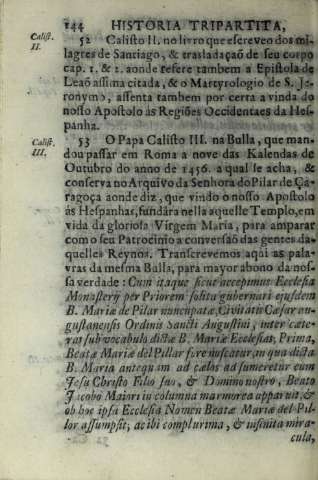 144 HISTORIA TRIPARTITA,
Calist. II.
52 Calisto II. no livro que escreveo dos mi-
lagres de Santiago, & trasladaçaõ de seu corpo
cap. 1. & 2. aonde refere tambem a Epistola de
Leaõ assima citada, & o Martyrologio de S. Je-
ronymo, assenta tambem por certa a vinda do
nosso Apostolo às Regiões Occidentaes da Hes-
panha.
Calist. III.
53 O Papa Calisto III. na Bulla, que man-
dou passar em Roma a nove das Kalendas de
Outubro do anno de 1456. a qual se acha, &
conserva no Arquivo da Senhora do Pilar de Ça-
ragoça aonde diz, que vindo o nosso Apostolo
ás Hespanhas, fundára nella aquelle Templo, em
vida da gloriosa Virgem Maria, para amparar
com o seu Patrocinio a conversaõ das gentes da-
quelles Reynos. Transcrevemos aqui as pala-
vras da mesma Bulla, para mayor abono da nos-
sa verdade: Cum itaque sicut accepimus Ecclesia
Monasterij per Priorem soliti gubernari ejusdem
B. Mariæ de Pilar nuncupatæ, Civitatis Cæsar au-
gustanensis Ordinis Sancti Augustini, inter cæte-
ras sub vocabulo dictæ B. Mariæ Ecclesias, Prima,
Beatæ Mariæ del Pillar fore noscatur, in qua dicta
B. Maria antequam ad cælos assumeretur cum
Jesu Christo Filio suo, & Domino nostro, Beato
Jacobo Maiori in columna marmorea apparuit, &
ob hoc ipsa Ecclesia Nomen Beatæ Mariæ del Pil-
lar assumpsit; ac ibi complurima, & infinita mira-
cula,